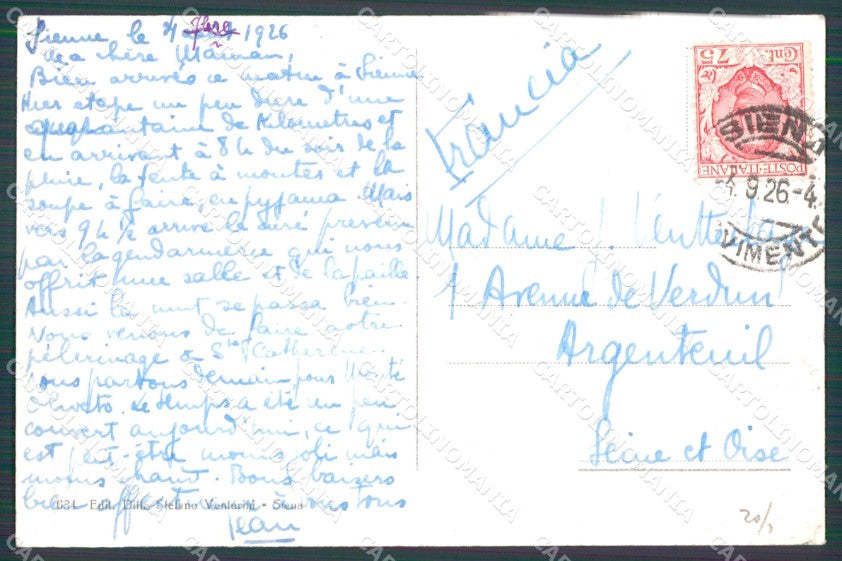 Sienne le 4 7bre 1926
Ma chère Maman,
Bien arrivés ce matin à Sienne
Hier étape un peu dure d'une
quarantaine de Kilomètres et
en arrivant à 8h du soir de la
pluie, la tente à monter et la
soupe à faire, en pyjama Mais
vers 9h ½ arrive le curé prévenu
par la gendarmerie qui nous
offrit une salle et de la paille
Aussi la nuit se passa bien.
Nous venons de faire notre
pélerinage à Ste Catherine.
Nous partons demain pour Monte
Oliveto. Le temps a été un peu
couvert aujourd'hui, ce qui
est peut-être moins joli mais
moins chaud. Bons baisers
bien à vous tous
Jean
1634 - Edit. Ditta Stefano Venturini - Siena
Francia
Madame J.
1 Avenue de Verdun
Argenteuil
Seine et Oise
75 Cent.
POSTE ITALIANE
SIENA
4.9.26.-4
VIMENTO
20/
CARTOLINOMANIA